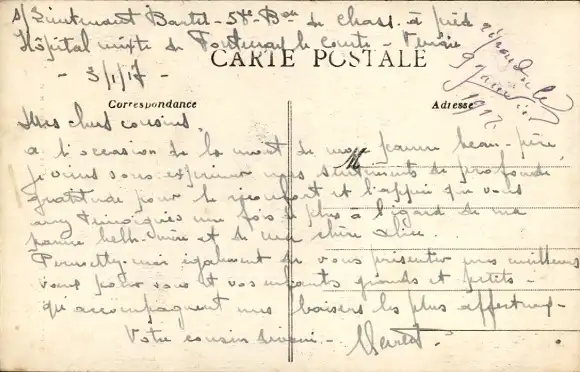 s/Lieutenant Bartel - 58e Bon de chass. à pied
Hôpital mixte de Fontenay le comte - Vendée
- 3/1/17 -
répondu le
9 janvier
1917
CARTE POSTALE
Correspondance
Adresse
Mes chers cousins,
à l'occasion de la mort de mon pauvre beau-père,
je viens vous exprimer mes sentiments de profonde
gratitude pour le réconfort et l'appui que vous
avez témoignés une fois de plus à l'égard de ma
pauvre belle-mère et de ma chère Alice.
Permettez-moi également de vous présenter mes meilleurs
vœux pour vous et vos enfants grands et petits -
qu'accompagnent mes baisers les plus affectueux -
Votre cousin dévoué -